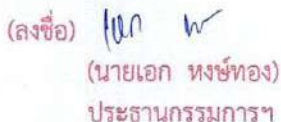 (ลงชื่อ) เอก ห
(นายเอก หงษ์ทอง)
ประธานกรรมการฯ